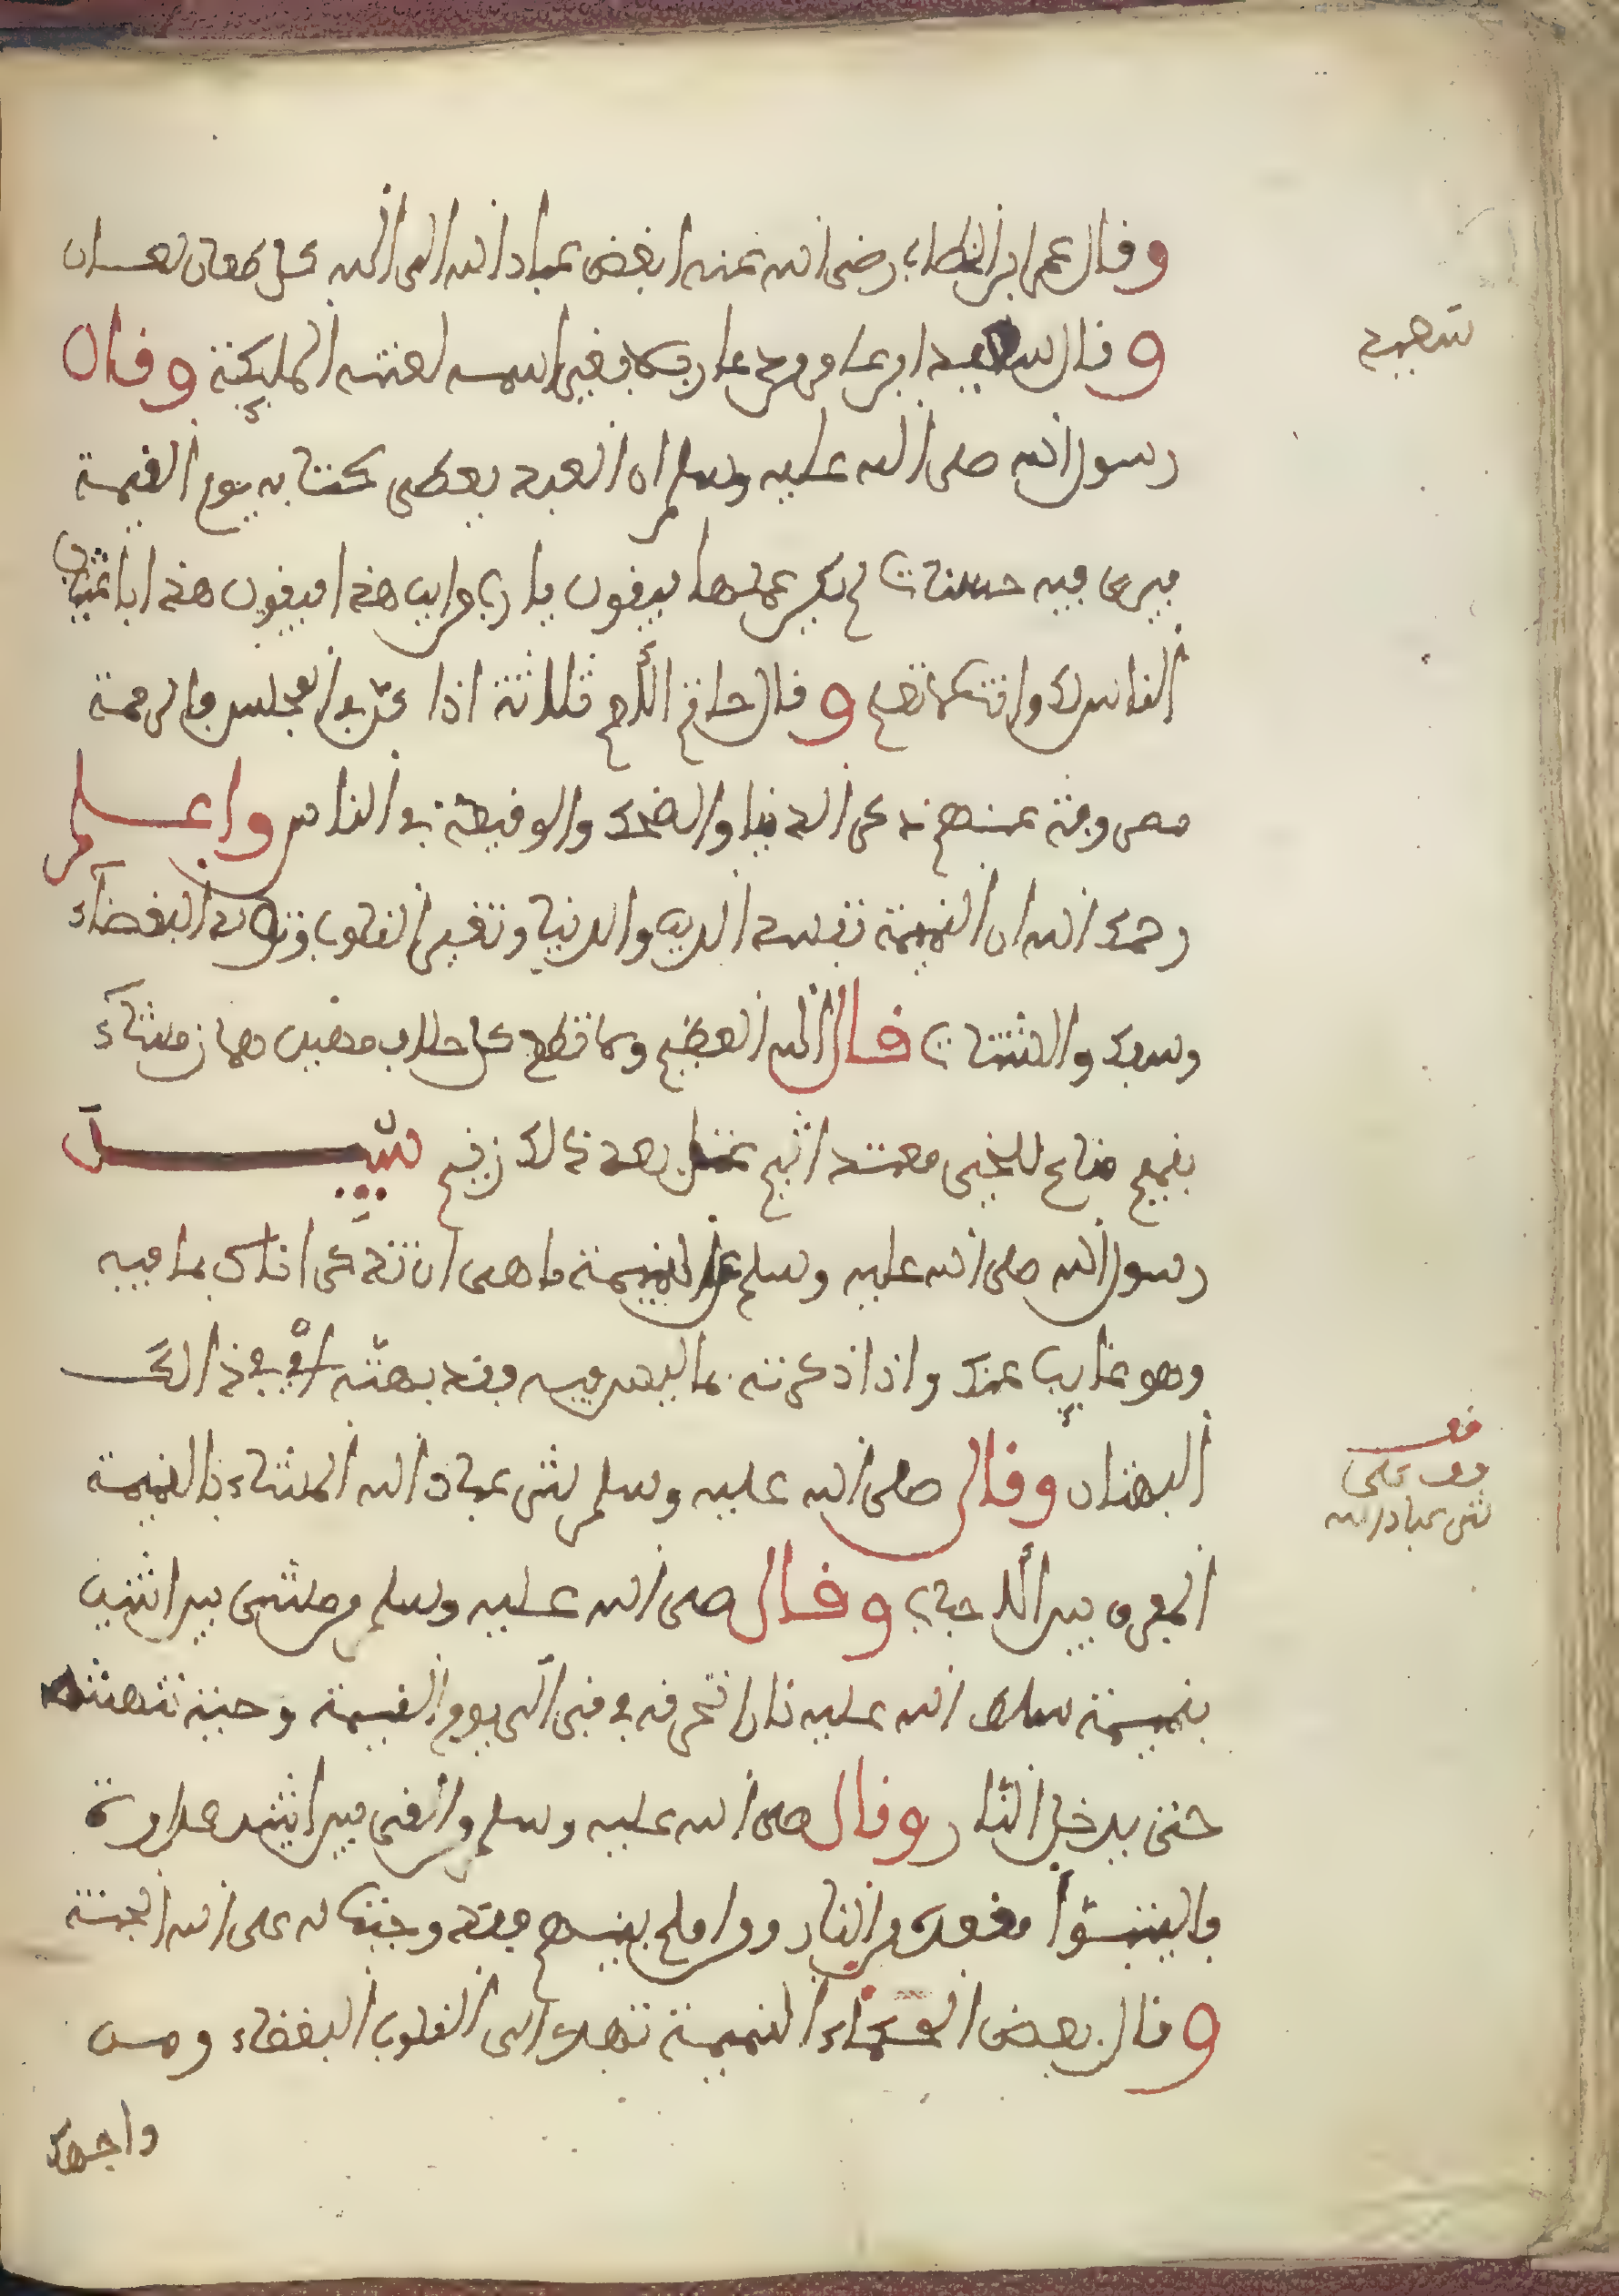 وقال عمر ابن الخطاب رضي الله عنه ابغض عباد الله الى الله كل طعان لعان
وقال سعيد ابن عامر من دعا رجلا بغير اسمه لعنته المليكة وقال
رسول الله صلى الله عليه وسلم ان العبد يعطى كتابه يوم القيمة
فيرى فيه حسنات لم يكن عملها فيقول يا رب من اين هذه افيقول هذه اباغتياب
الناس لك وانت لا تعلم وقال حاتم الأصم ثلاثة اذا كن في المجلس فالرحمة
مصروفة عنهم ذكر الدنيا والضحك والوقيعة في الناس واعلم
رحمك الله ان النميمة تفسد الدين والدنيا وتغير القلوب وتولد البغضاء
وسبك والشتات قال الله العظيم ولا تطع كل حلاف مهين هماز مشاء
بنميم مناع للخير معتد اثيم عتل بعد ذلك زنيم سيل
رسول الله صلى الله عليه وسلم عن النميمة ما هي ان تذكر اخاك بما فيه
وهو غايب عنك واذا ذكرته بما ليس فيه فقد بهته اي في ذالك
البهتان وقال صلى الله عليه وسلم شر عباد الله المشاء بالنميمة
المفرق بين الأحباب وقال صلى الله عليه وسلم من مشى بين اثنين
بنميمة سلط الله عليه نارا تحرقه في قبره الى يوم القيمة وحية تنهشه
حتى يدخل النار وقال صلى الله عليه وسلم من القى بين اثنين عداوة
فاليتبوأ مقعده من النار ومن اصلح بينهم فقد وجبت له على الله الجنة
وقال بعض الحكماء النميمة تهدى الى القلوب البغضاء ومن
واجهك
قف
قف على
شر عباد الله